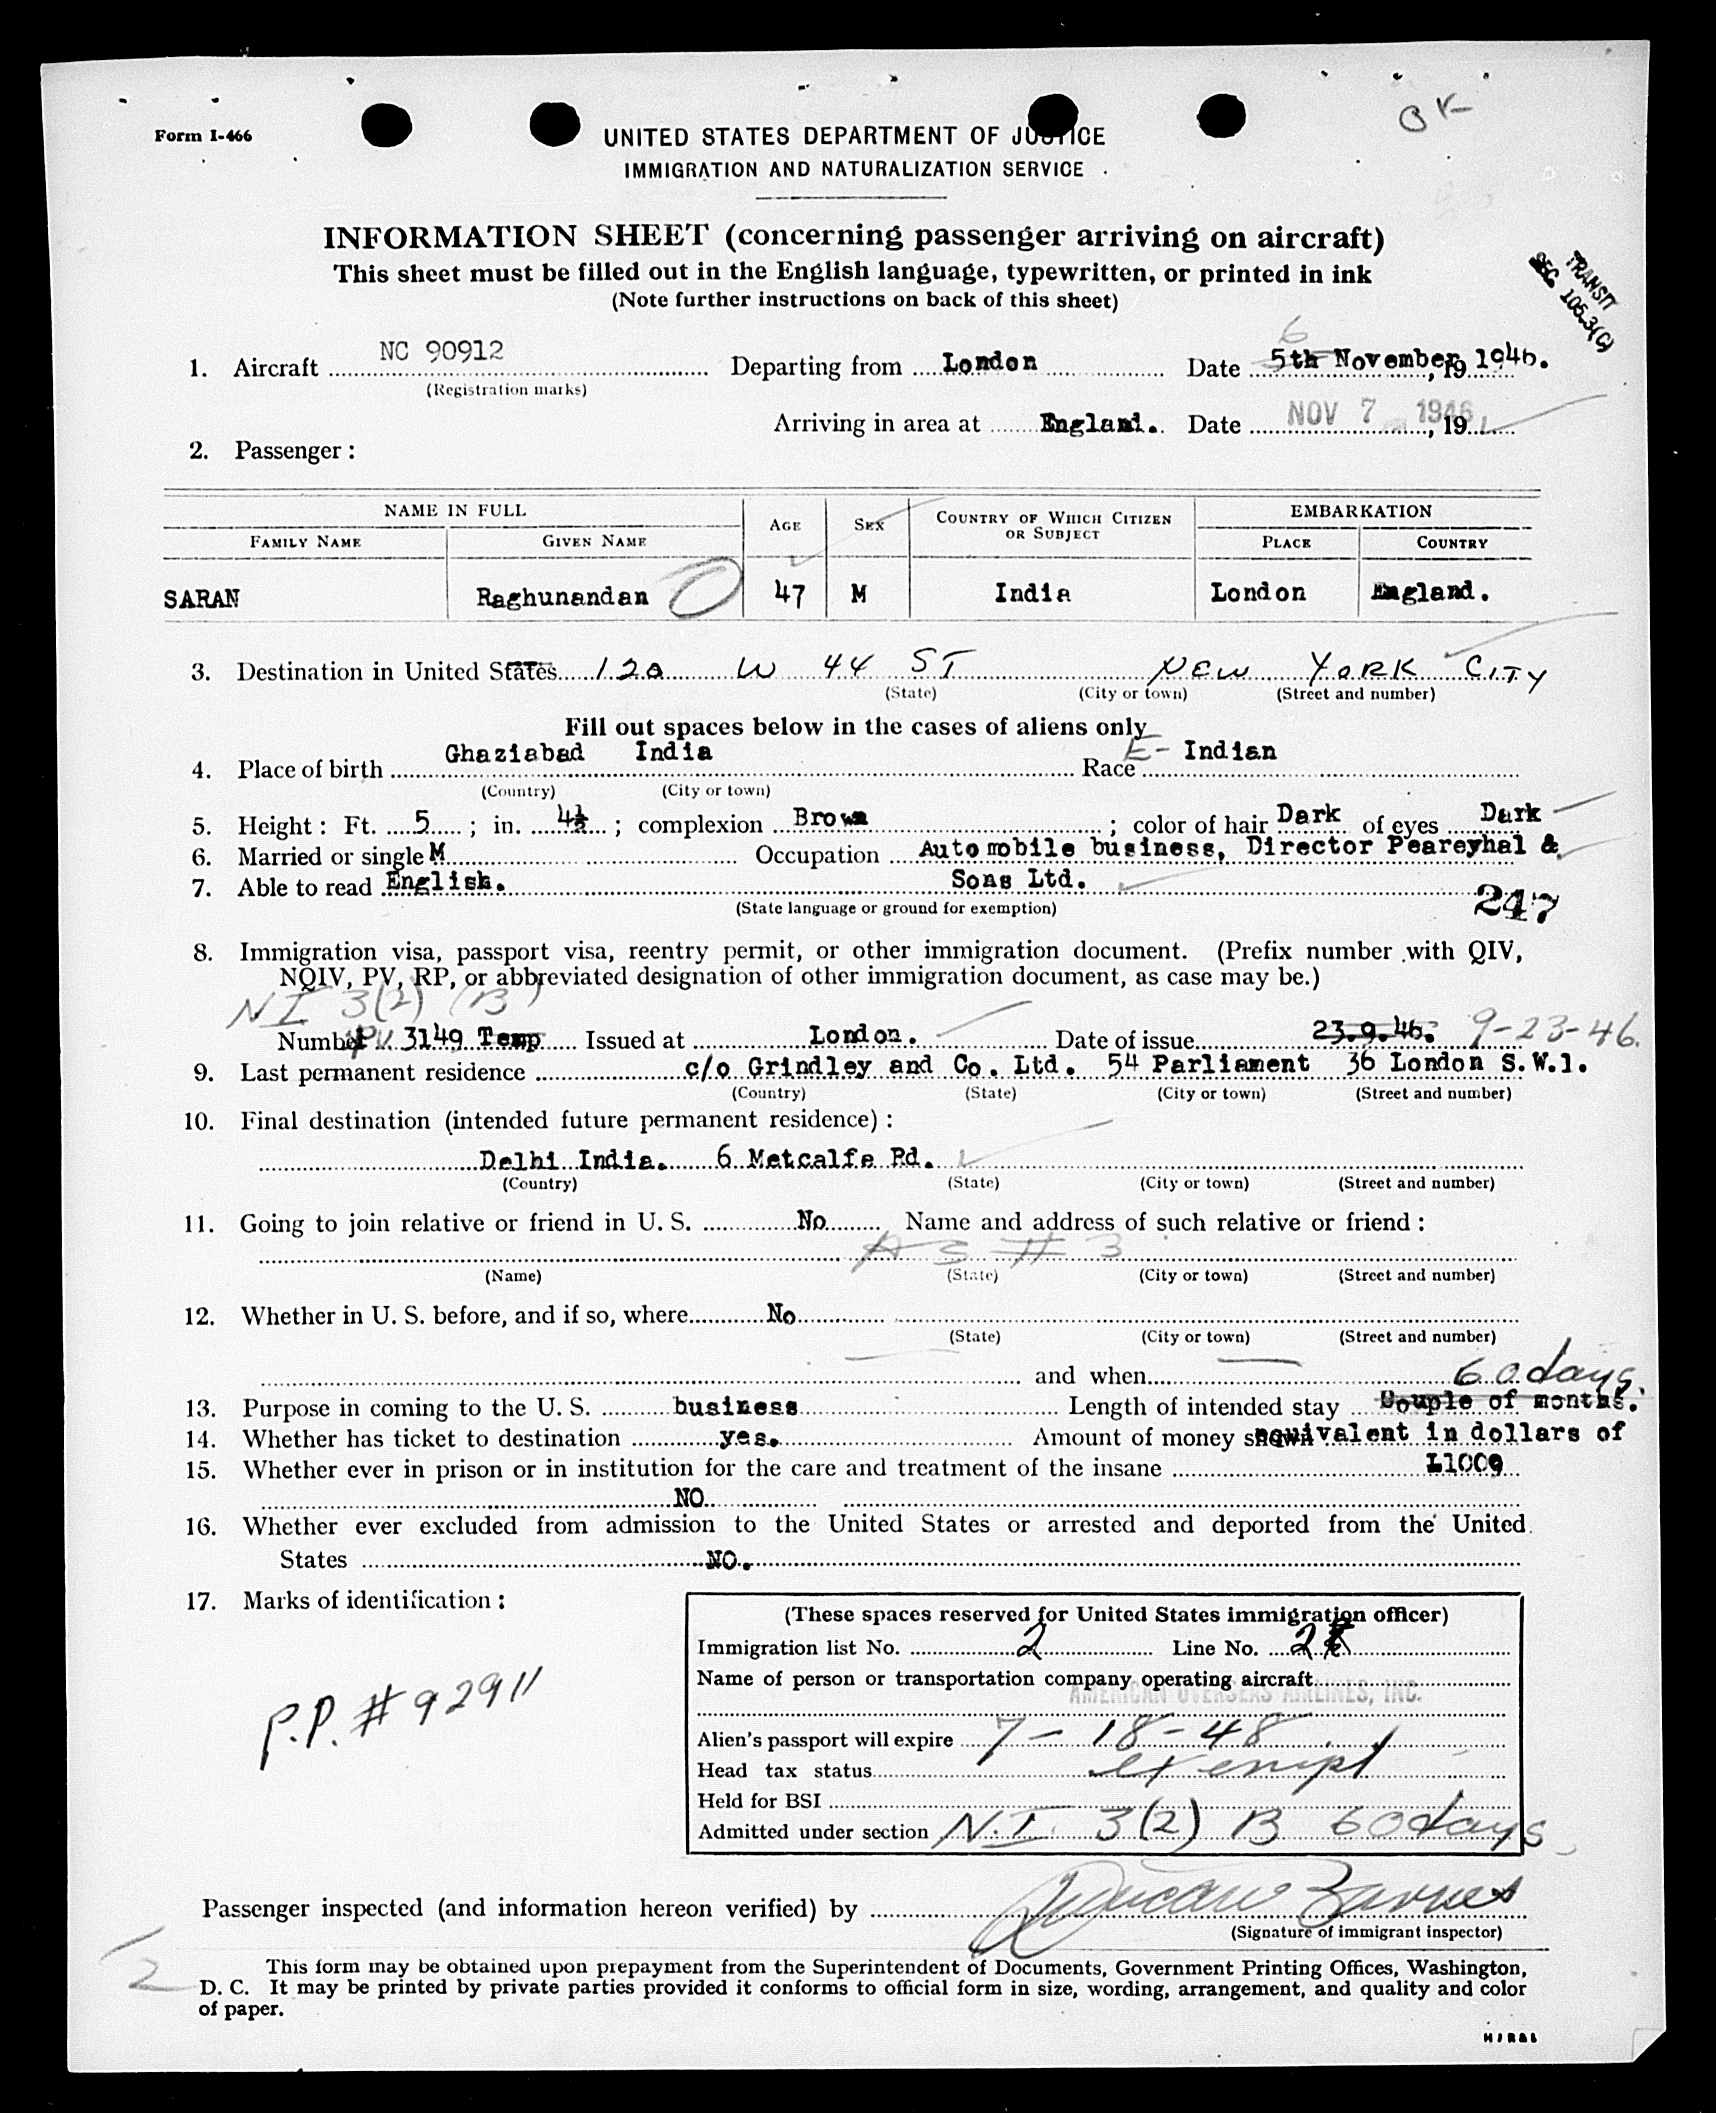 OK
Form I-466
UNITED STATES DEPARTMENT OF JUSTICE
IMMIGRATION AND NATURALIZATION SERVICE
INFORMATION SHEET (concerning passenger arriving on aircraft)
This sheet must be filled out in the English language, typewritten, or printed in ink
(Note further instructions on back of this sheet)
TRANSIT
SEC. 105.3(C)
6
1. Aircraft NC 90912 Departing from London Date 5th November, 19 1946.
(Registration marks)
Arriving in area at England. Date NOV 7 1946, 19
2. Passenger:
NAME IN FULL AGE SEX COUNTRY OF WHICH CITIZEN OR SUBJECT EMBARKATION
FAMILY NAME GIVEN NAME PLACE COUNTRY
SARAN Raghunandan 47 M India London England.
3. Destination in United States 120 W 44 ST NEW YORK CITY
(State) (City or town) (Street and number)
Fill out spaces below in the cases of aliens only
4. Place of birth Ghaziabad India Race E- Indian
(Country) (City or town)
5. Height: Ft. 5; in. 4½; complexion Brown; color of hair Dark of eyes Dark
6. Married or single M Occupation Automobile business, Director Peareyhal &
7. Able to read English. Sons Ltd.
(State language or ground for exemption)
247
8. Immigration visa, passport visa, reentry permit, or other immigration document. (Prefix number with QIV,
NQIV, PV, RP, or abbreviated designation of other immigration document, as case may be.)
NI 3(2) (B)
Number PV 3149 Temp Issued at London. Date of issue 23.9.46. 9-23-46.
9. Last permanent residence c/o Grindley and Co. Ltd. 54 Parliament 36 London S.W.1.
(Country) (State) (City or town) (Street and number)
10. Final destination (intended future permanent residence):
Delhi India. 6 Metcalfe Rd.
(Country) (State) (City or town) (Street and number)
11. Going to join relative or friend in U. S. No Name and address of such relative or friend:
AS # 3
(Name) (State) (City or town) (Street and number)
12. Whether in U. S. before, and if so, where No
(State) (City or town) (Street and number)
and when
60 days.
13. Purpose in coming to the U. S. business Length of intended stay Couple of months.
14. Whether has ticket to destination yes. Amount of money shown equivalent in dollars of
15. Whether ever in prison or in institution for the care and treatment of the insane L1000
NO
16. Whether ever excluded from admission to the United States or arrested and deported from the United
States NO.
17. Marks of identification:
P.P. # 92911
(These spaces reserved for United States immigration officer)
Immigration list No. 2 Line No. 2
Name of person or transportation company operating aircraft
AMERICAN OVERSEAS AIRLINES, INC.
Alien's passport will expire 7-18-48
Head tax status exempt
Held for BSI
Admitted under section N.I. 3(2) B 60 days
Passenger inspected (and information hereon verified) by Duncan Barnes
(Signature of immigrant inspector)
2
This form may be obtained upon prepayment from the Superintendent of Documents, Government Printing Offices, Washington,
D. C. It may be printed by private parties provided it conforms to official form in size, wording, arrangement, and quality and color
of paper.